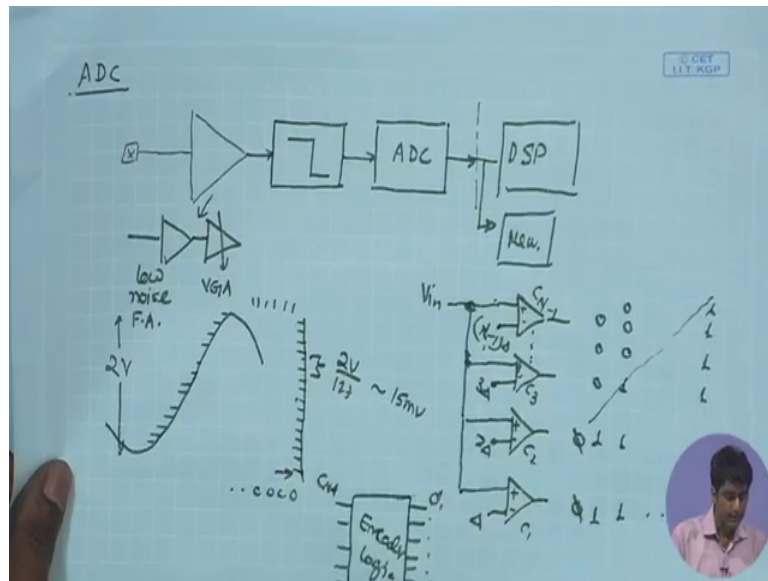 ADC
© CET
I.I.T. KGP
ADC
DSP
Mem.
low
noise
F.A.
VGA
2V
2V
127
~ 15mV
..0000
Vin
CN-1
C3
3Δ
C2
2Δ
C1
Δ
0
0 0
0 0
0 1
0 1 1
0 1 1 ..
1
1
1
1
CN-1
O1
Encoder
Logic